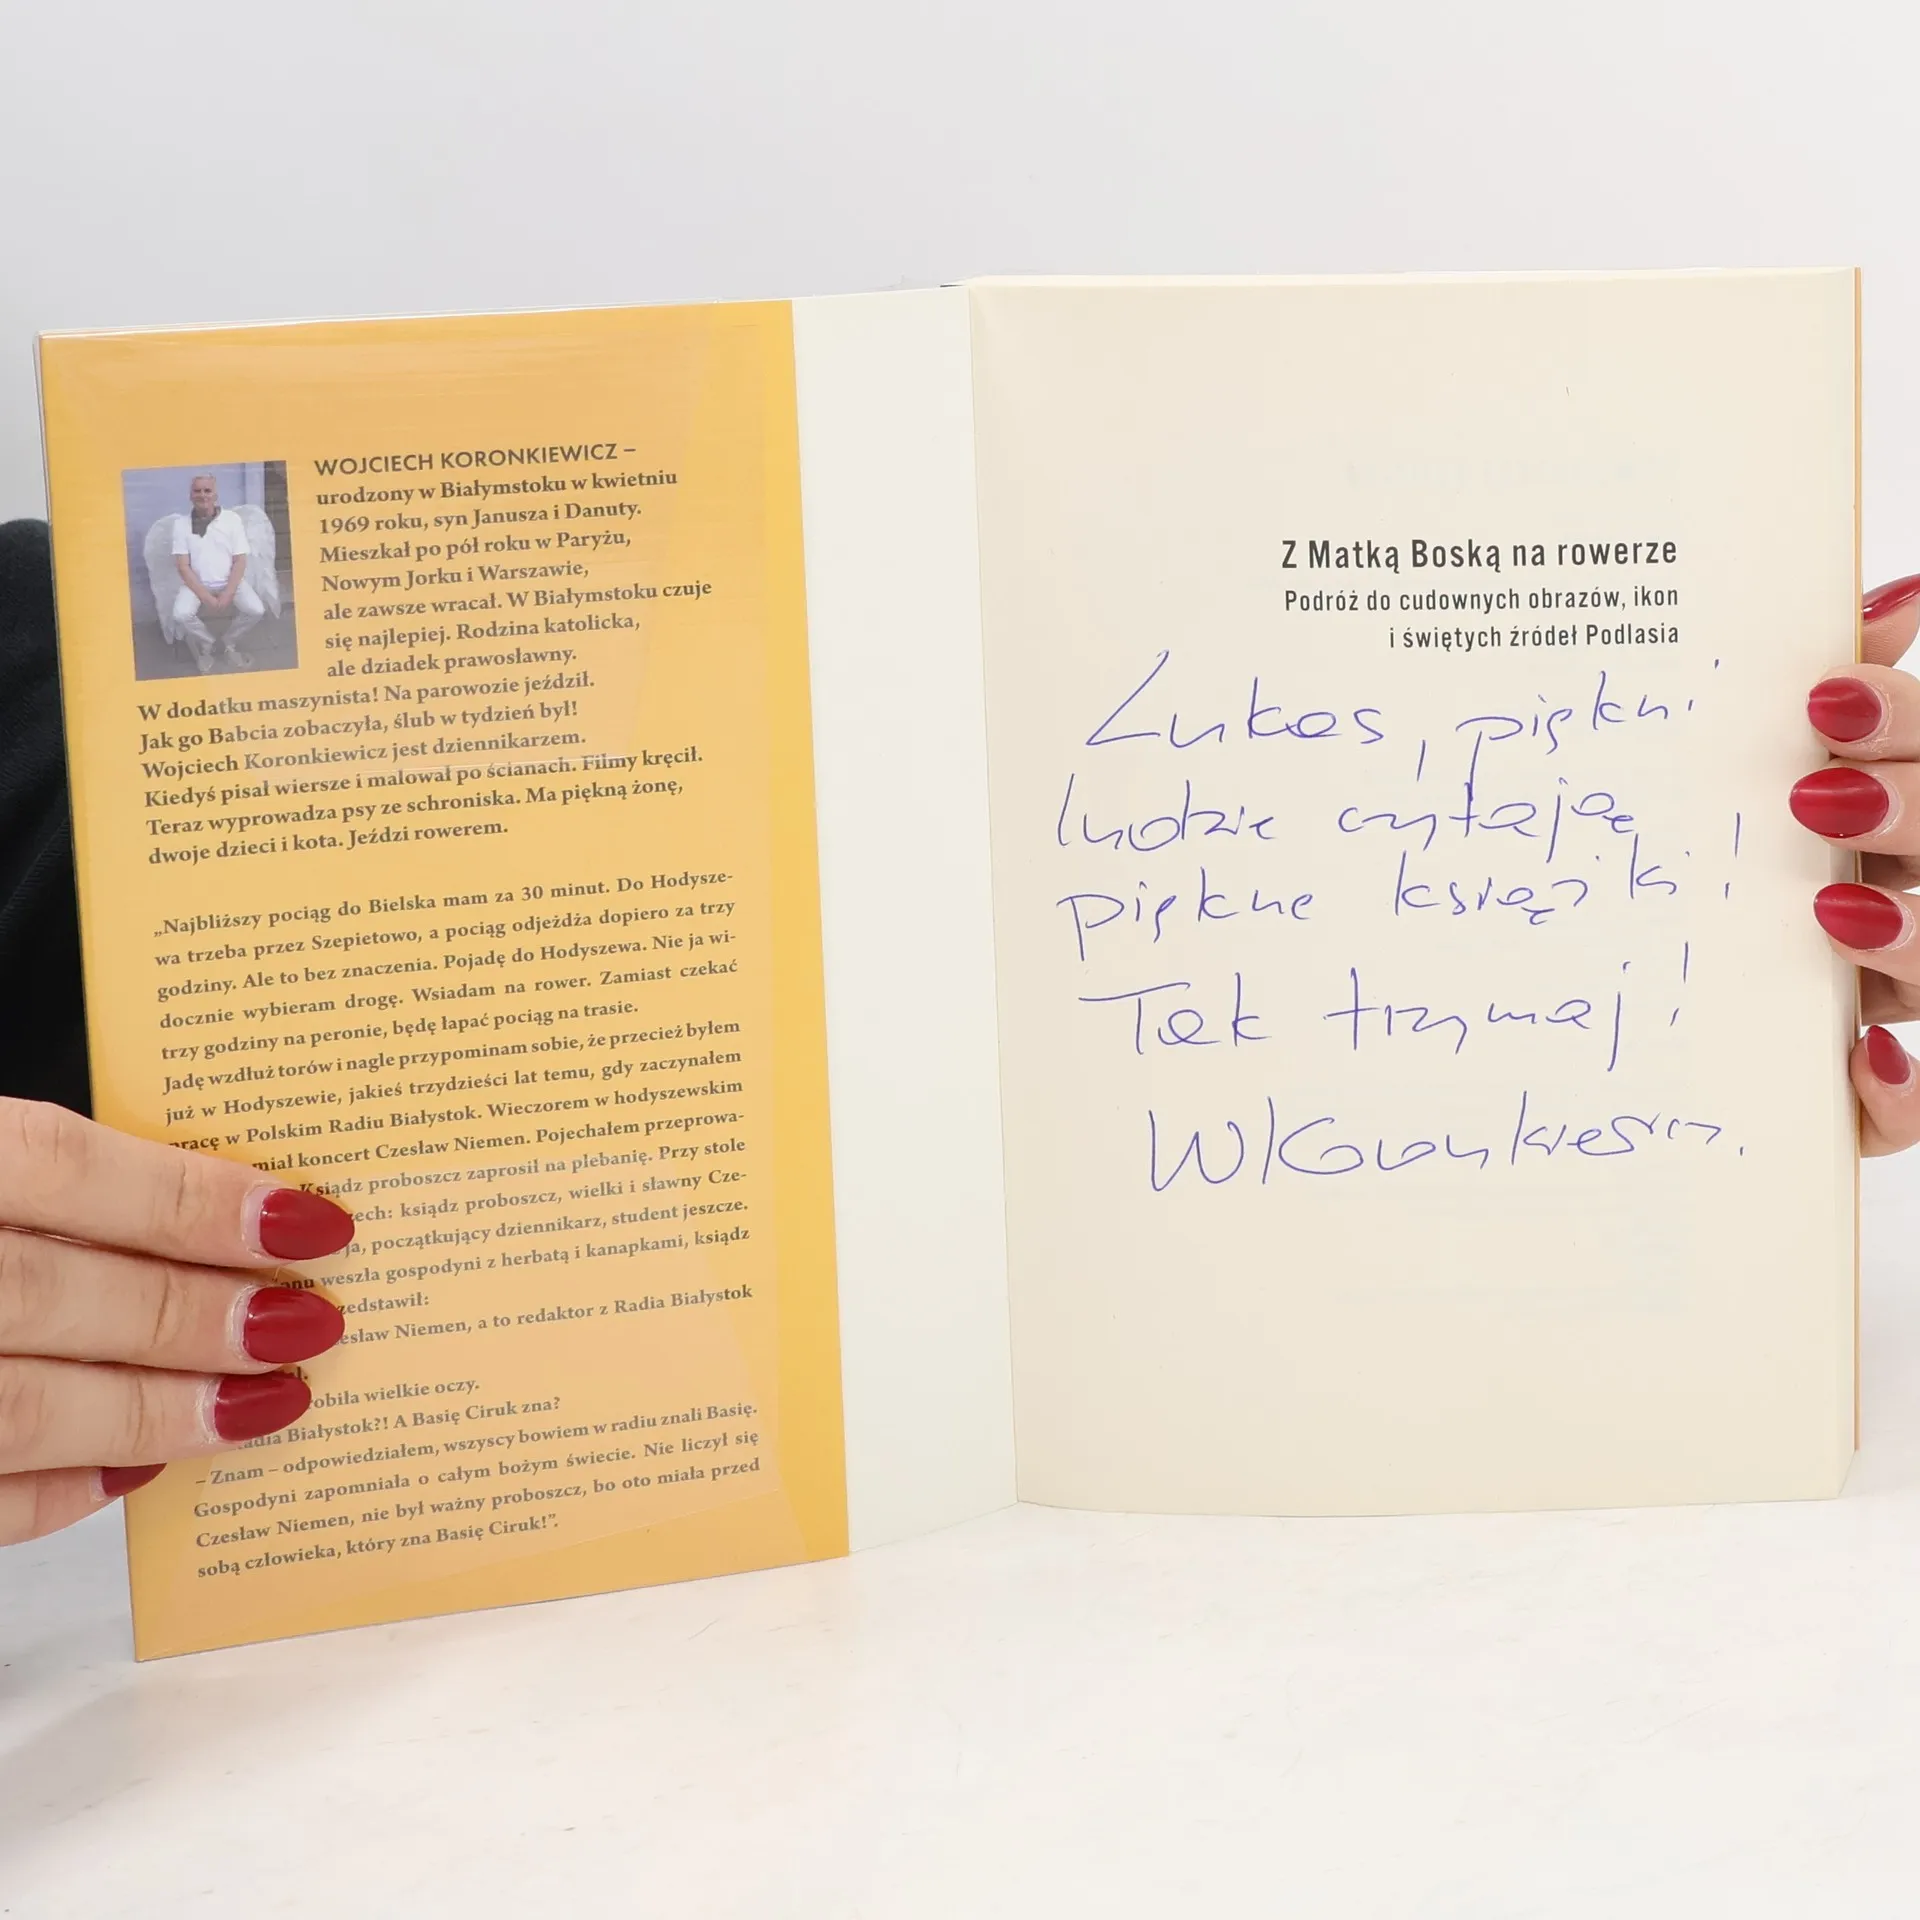 WOJCIECH KORONKIEWICZ –
urodzony w Białymstoku w kwietniu
1969 roku, syn Janusza i Danuty.
Mieszkał po pół roku w Paryżu,
Nowym Jorku i Warszawie,
ale zawsze wracał. W Białymstoku czuje
się najlepiej. Rodzina katolicka,
ale dziadek prawosławny.
W dodatku maszynista! Na parowozie jeździł.
Jak go Babcia zobaczyła, ślub w tydzień był!
Wojciech Koronkiewicz jest dziennikarzem.
Kiedyś pisał wiersze i malował po ścianach. Filmy kręcił.
Teraz wyprowadza psy ze schroniska. Ma piękną żonę,
dwoje dzieci i kota. Jeździ rowerem.
„Najbliższy pociąg do Bielska mam za 30 minut. Do Hodysze-
wa trzeba przez Szepietowo, a pociąg odjeżdża dopiero za trzy
godziny. Ale to bez znaczenia. Pojadę do Hodyszewa. Nie ja wi-
docznie wybieram drogę. Wsiadam na rower. Zamiast czekać
trzy godziny na peronie, będę łapać pociąg na trasie.
Jadę wzdłuż torów i nagle przypominam sobie, że przecież byłem
już w Hodyszewie, jakieś trzydzieści lat temu, gdy zaczynałem
pracę w Polskim Radiu Białystok. Wieczorem w hodyszewskim
miał koncert Czesław Niemen. Pojechałem przeprowa-
Ksiądz proboszcz zaprosił na plebanię. Przy stole
zech: ksiądz proboszcz, wielki i sławny Cze-
ja, początkujący dziennikarz, student jeszcze.
onu weszła gospodyni z herbatą i kanapkami, ksiądz
zedstawił:
esław Niemen, a to redaktor z Radia Białystok
al.
robiła wielkie oczy.
adia Białystok?! A Basię Ciruk zna?
– Znam – odpowiedziałem, wszyscy bowiem w radiu znali Basię.
Gospodyni zapomniała o całym bożym świecie. Nie liczył się
Czesław Niemen, nie był ważny proboszcz, bo oto miała przed
sobą człowieka, który zna Basię Ciruk!”.
Z Matką Boską na rowerze
Podróż do cudownych obrazów, ikon
i świętych źródeł Podlasia
Lukas, piękni
ludzie czytają
piękne książki!
Tak trzymaj!
WKoronkiewicz.